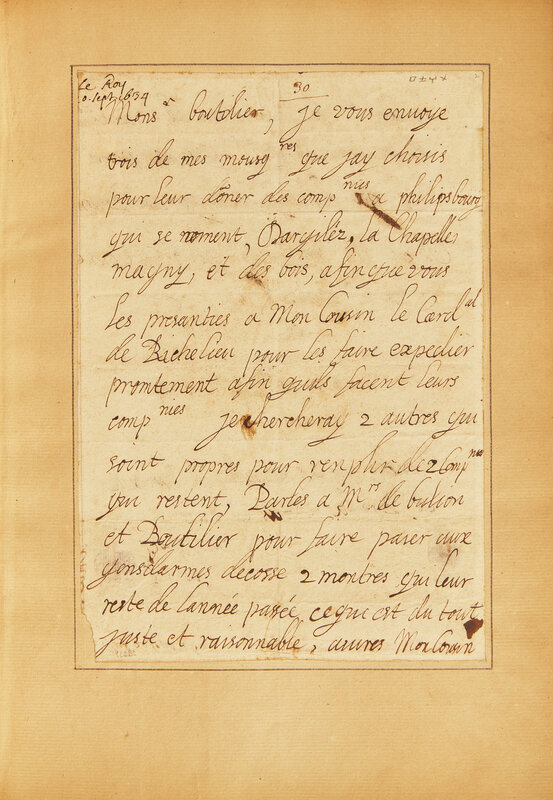 Le Roy 30
sept 1634
Mons.r boutilier, je vous envoye
trois de mes mousq.res que jay choisis
pour leur doner des comp.nies a philipsbourg
qui se noment, Dargilez, la Chapelle,
magny, et des bois, afin que vous
les presanties a Mon Cousin le Card.al
de Richelieu pour les faire expedier
prontement afin quils facent leurs
comp.nies je chercheray 2 autres qui
soint propres pour renplir de 2 Comp.nies
qui restent, Parles a M.rs de bulion
et Boutilier pour faire paier aux
gensdarmes decosse 2 montres qui leur
reste de lannée pasée, ce que est du tout
juste et raisonnable, Mon Cousin